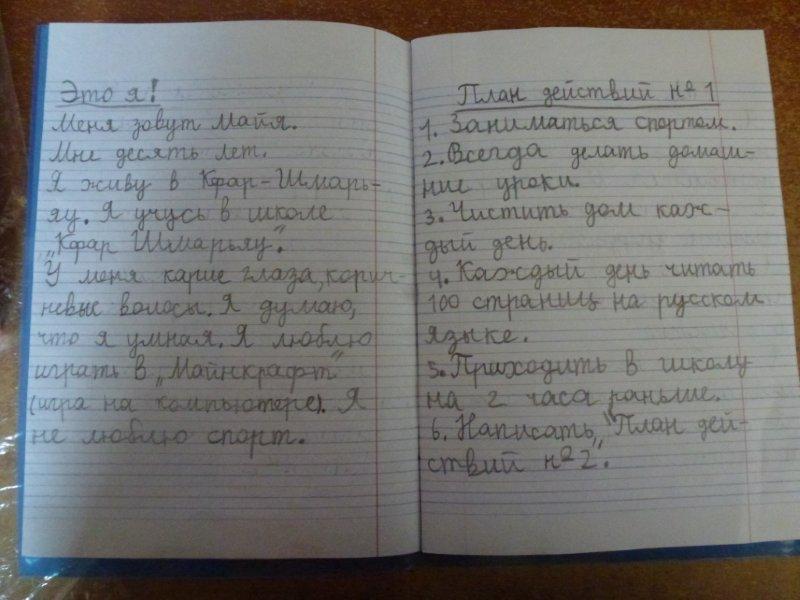 Это я!
Меня зовут Майя.
Мне десять лет.
Я живу в Кфар-Шмарь-
яу. Я учусь в школе
„Кфар Шмарьяу“.
У меня карие глаза, корич-
невые волосы. Я думаю,
что я умная. Я люблю
играть в „Майнкрафт“
(игра на компьютере). Я
не люблю спорт.
План действий № 1
1. Заниматься спортом.
2. Всегда делать домаш-
ние уроки.
3. Чистить дом каж-
дый день.
4. Каждый день читать
100 страниц на русском
языке.
5. Приходить в школу
на 2 часа раньше.
6. Написать „План дей-
ствий № 2“.